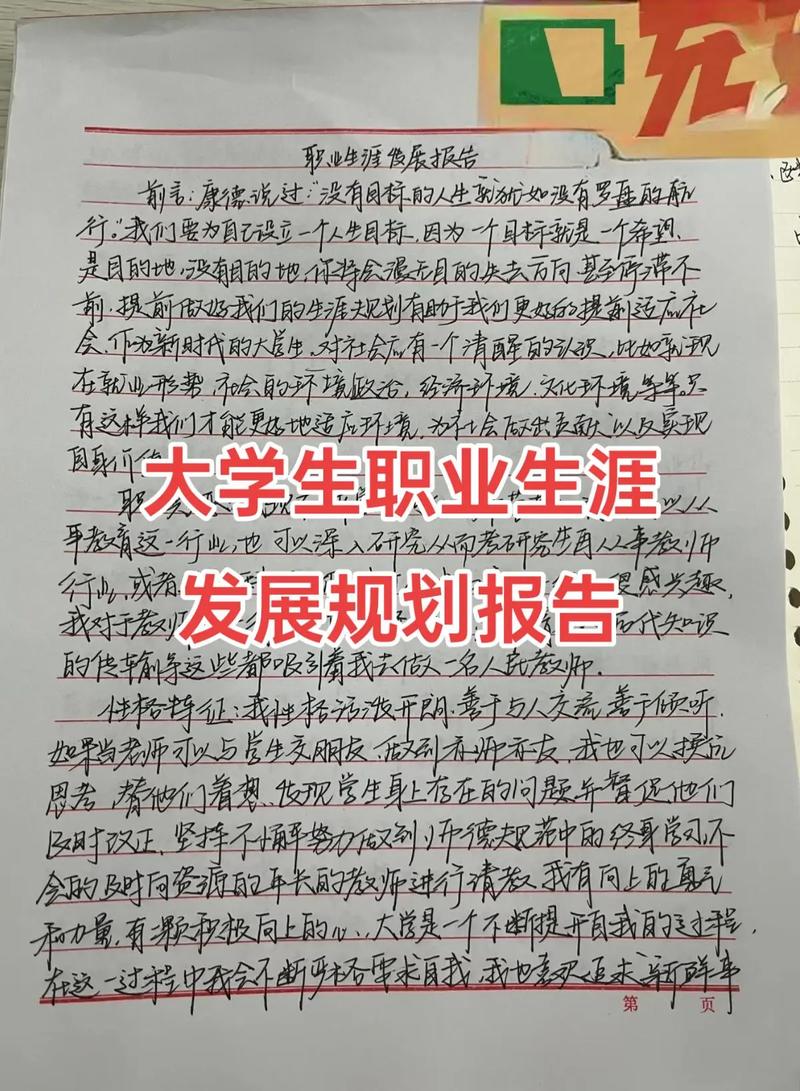 充
职业生涯发展报告
前言：康德说过："没有目标的人生就犹如没有罗盘的航
行。"我们要为自己设立一个人生目标，因为一个目标就是一个希望、
是目的地，没有目的地，你将会漫无目的失去方向甚至停滞不
前，提前做好我们的生涯规划有助于我们更好的提前适应社
会，作为新时代的大学生，对社会应有一个清醒的认识，比如就现
在就业形势，社会的环境政治，经济环境，文化环境等等。只
有这样我们才能更好地适应环境，为社会做出贡献以及实现
自身价值
大学生职业生涯
以从
事教育这一行业，也可以深入研究从而考研究生再从事教师
行业，或者
很感兴趣，
发展规划报告
我对于教师
代知识
的传输等这些都吸引着我去做一名人民教师。
性格特征：我性格活泼开朗，善于与人交流，善于倾听，
如果当老师可以与学生交朋友，做到亦师亦友，我也可以换位
思考，替他们着想，发现学生身上存在的问题并督促他们
及时改正，坚持不懈努力做到师德规范中的终身学习，不
会的及时向资源的年长的教师进行请教，我有向上的勇气
和力量，有颗积极向上的心，大学是一个不断提升自我的过程，
在这一过程中我会不断严格要求自我，我也喜欢追求新鲜事
第 页